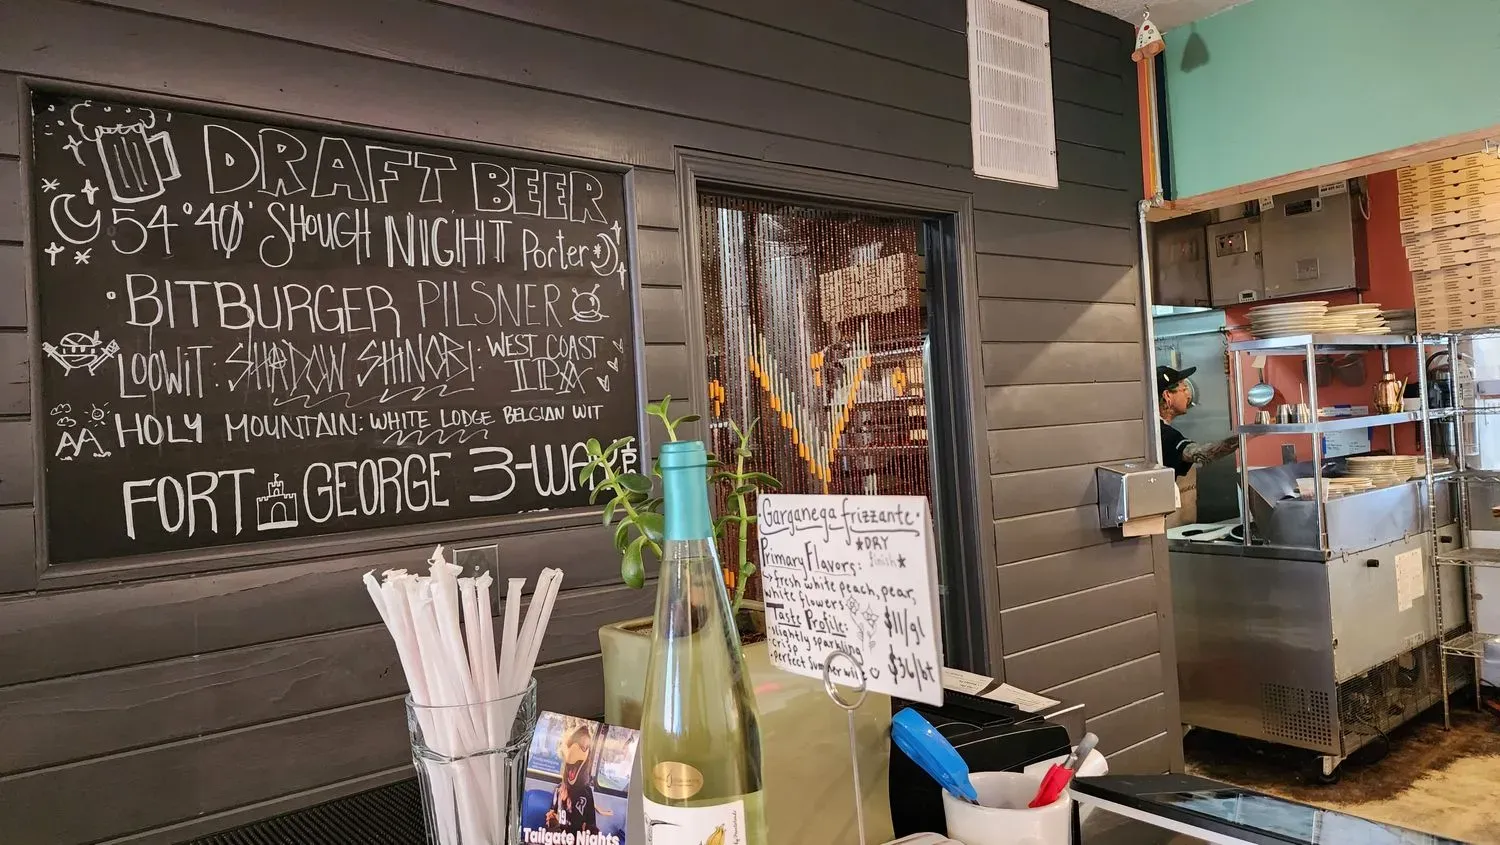 DRAFT BEER
54°40' SHOUGH NIGHT Porter
·BITBURGER PILSNER
LOOWIT: SHADOW SHINOBI: WEST COAST
IPA
HOLY MOUNTAIN: WHITE LODGE BELGIAN WIT
FORT GEORGE 3-WAY
·Garganega frizzante·
*DRY
finish*
Primary Flavors:
fresh white peach, pear,
white flowers
Taste Profile:
·slightly sparkling
·crisp
·perfect summer wine
$11/gl
$36/bt
Tailgate Nights